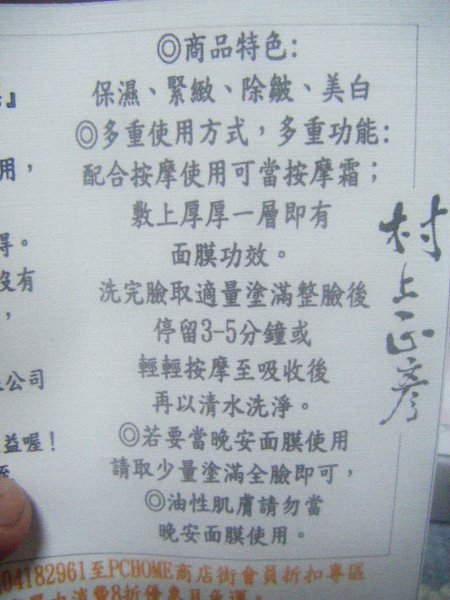 ◎商品特色:
保濕、緊緻、除皺、美白
◎多重使用方式，多重功能:
配合按摩使用可當按摩霜；
敷上厚厚一層即有
面膜功效。
洗完臉取適量塗滿整臉後
停留3-5分鐘或
輕輕按摩至吸收後
再以清水洗淨。
◎若要當晚安面膜使用
請取少量塗滿全臉即可，
◎油性肌膚請勿當
晚安面膜使用。
村上正彥
』
用，
得。
沒有
，
公司
益喔！
04182961至PCHOME商店街會員折扣專區
消費8折優惠